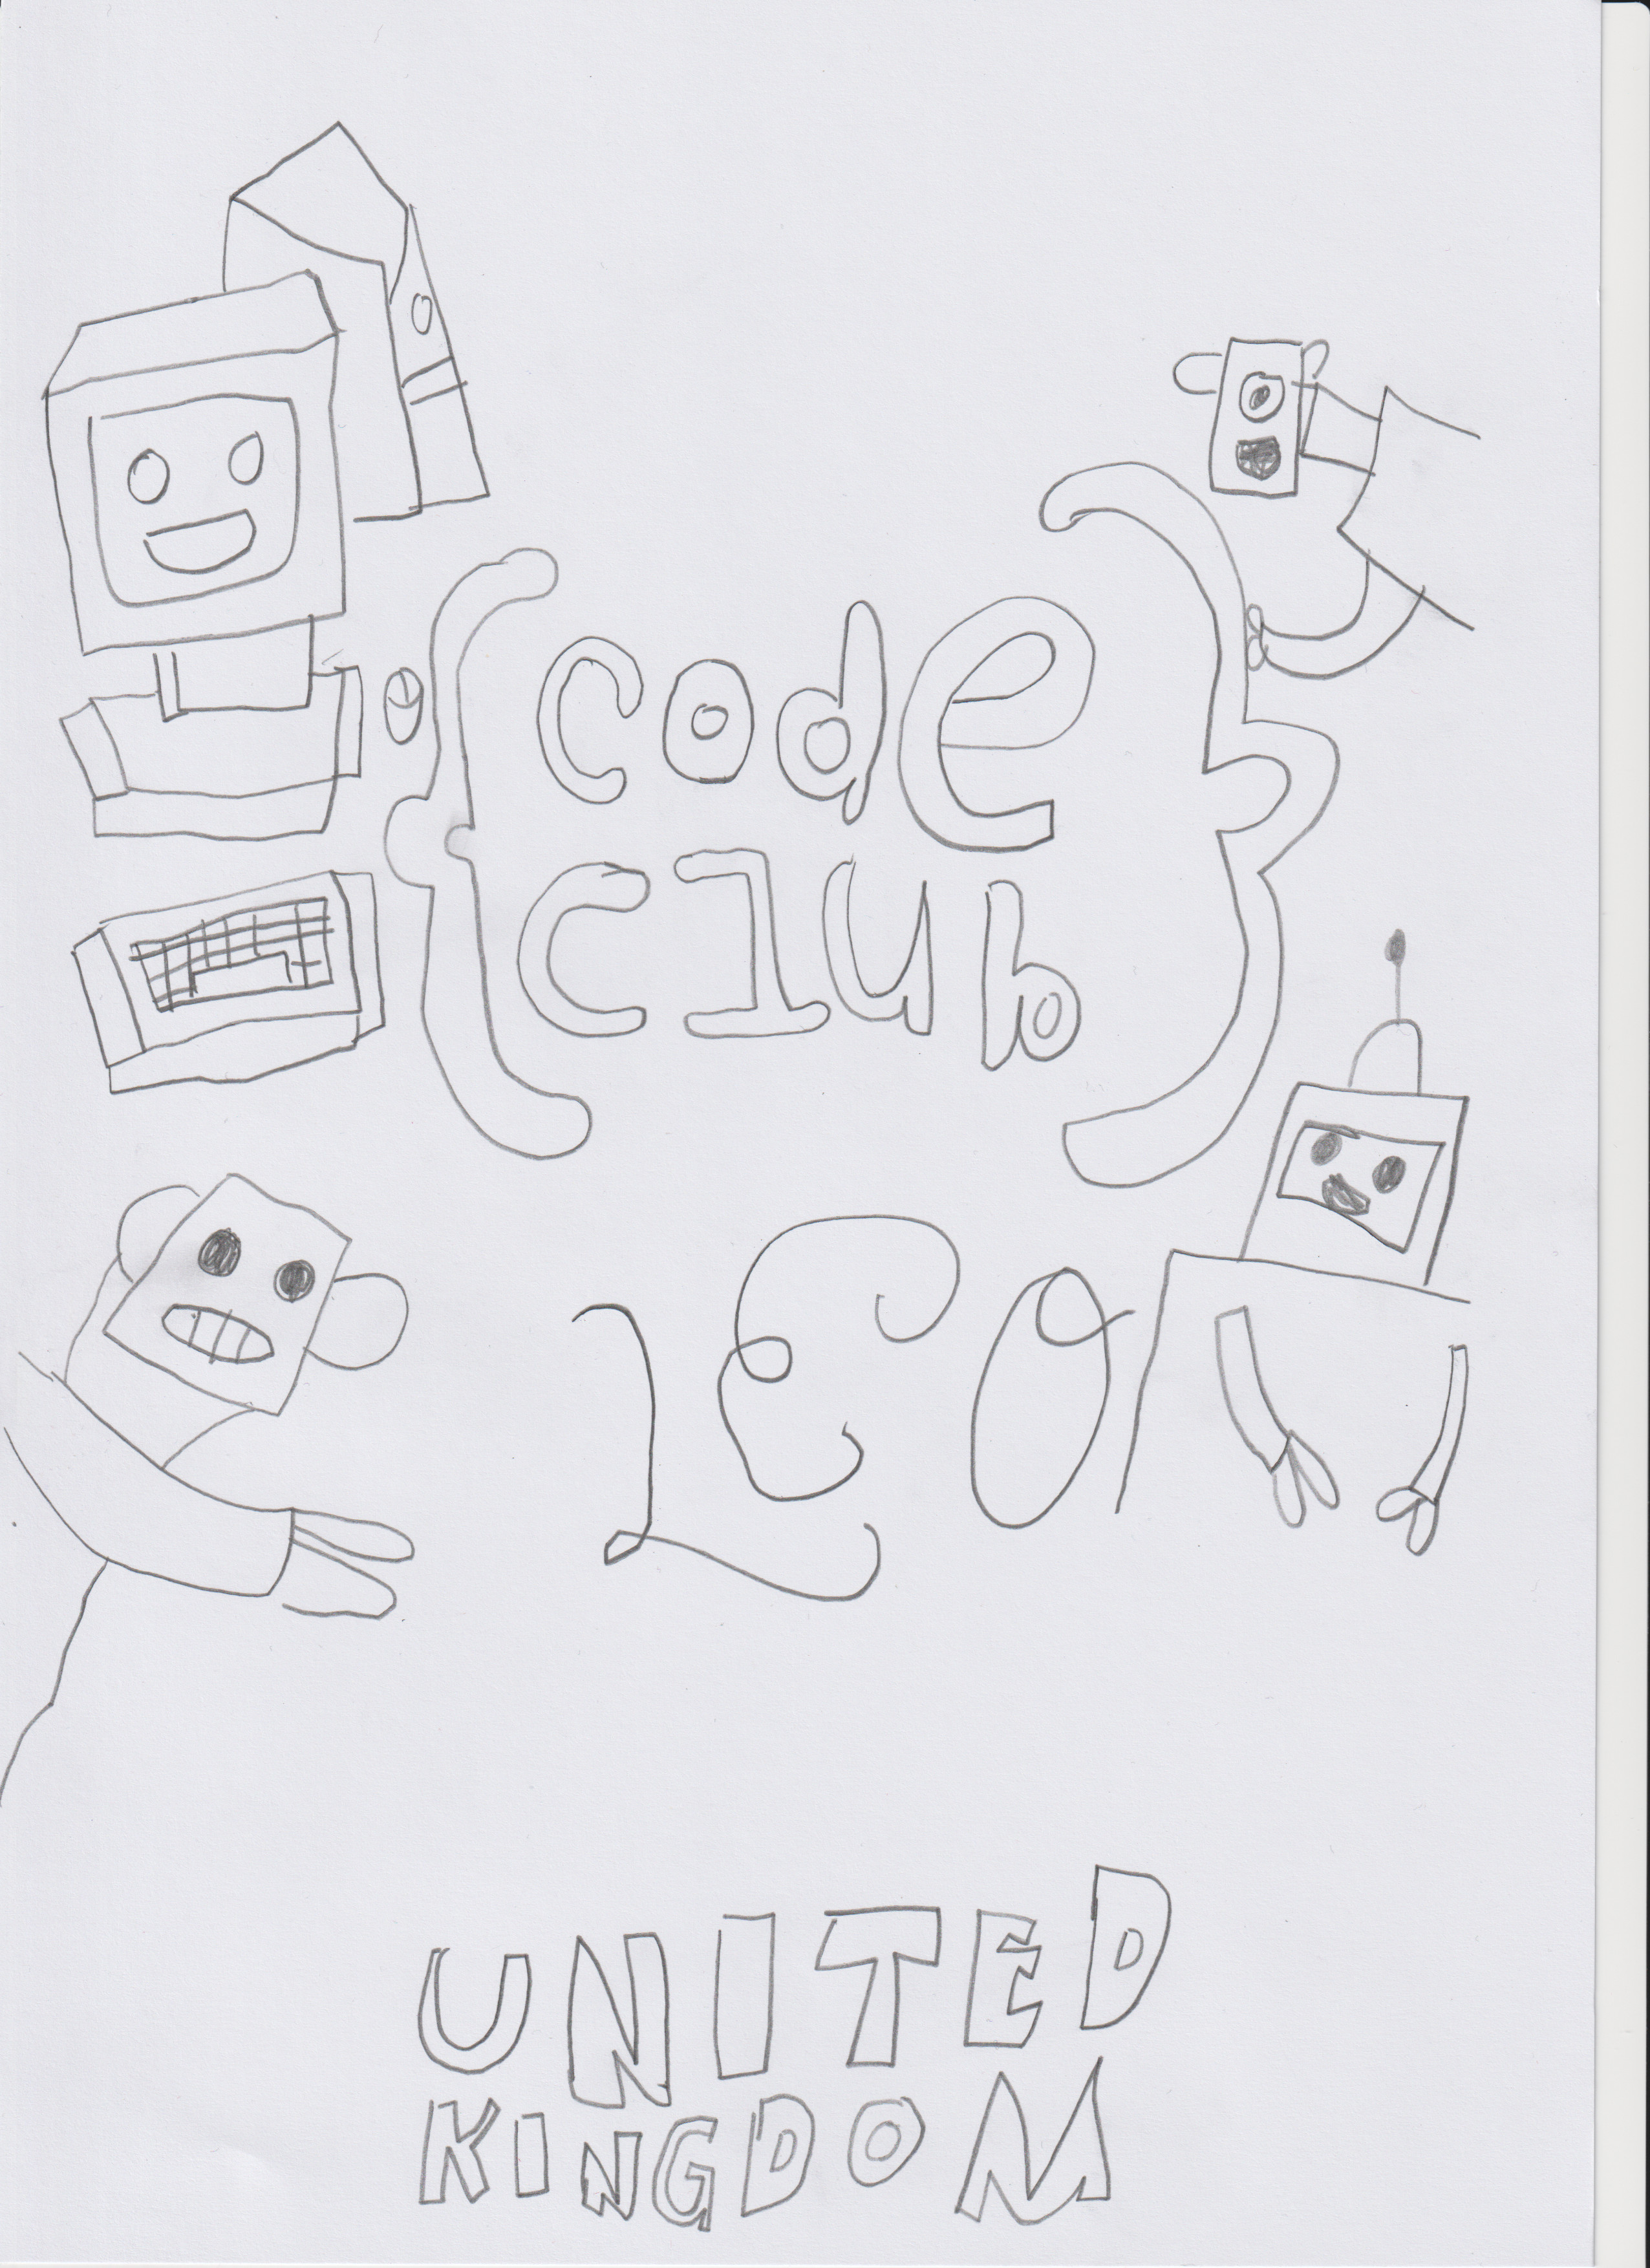 {code
club}
LEO
UNITED
KINGDOM